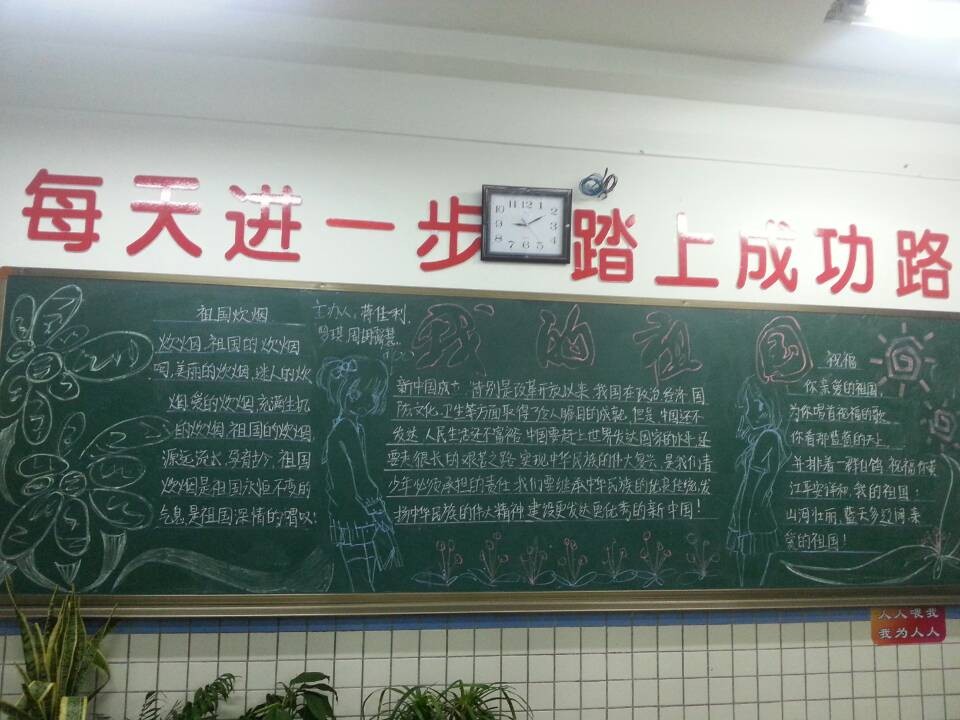 每天进一步 踏上成功路
11 12 1
10 2
9 3
8 4
7 6 5
祖国炊烟
炊烟,祖国的炊烟
啊,美丽的炊烟,迷人的炊
烟,爱的炊烟,充满生机
的炊烟,祖国的炊烟,
源远流长,孕育古今,祖国
炊烟是祖国永恒不变的
气息是祖国深情的谓叹!
主办人:蒋佳利
周
我的祖国
新中国成 特别是改革开放以来 我国在政治 经济 国
防 文化、卫生等方面取得了令人瞩目的成就,但是 中国还不
发达 人民生活还不富裕 中国要赶上世界发达国家的水平 还
要走很长的艰苦之路 实现中华民族的伟大复兴,是我们青
少年必须承担的责任 我们要继承中华民族的优良传统,发
扬中华民族的伟大精神 建设更发达更优秀的新中国!
祝福
你亲爱的祖国,
为你唱首祝福的歌
你看那蓝蓝的天上
并排着一群白鸽 祝福你
江平安详和,我的祖国:
山河壮丽,蓝天多辽阔 亲
爱的祖国!
人人 我
我为人人